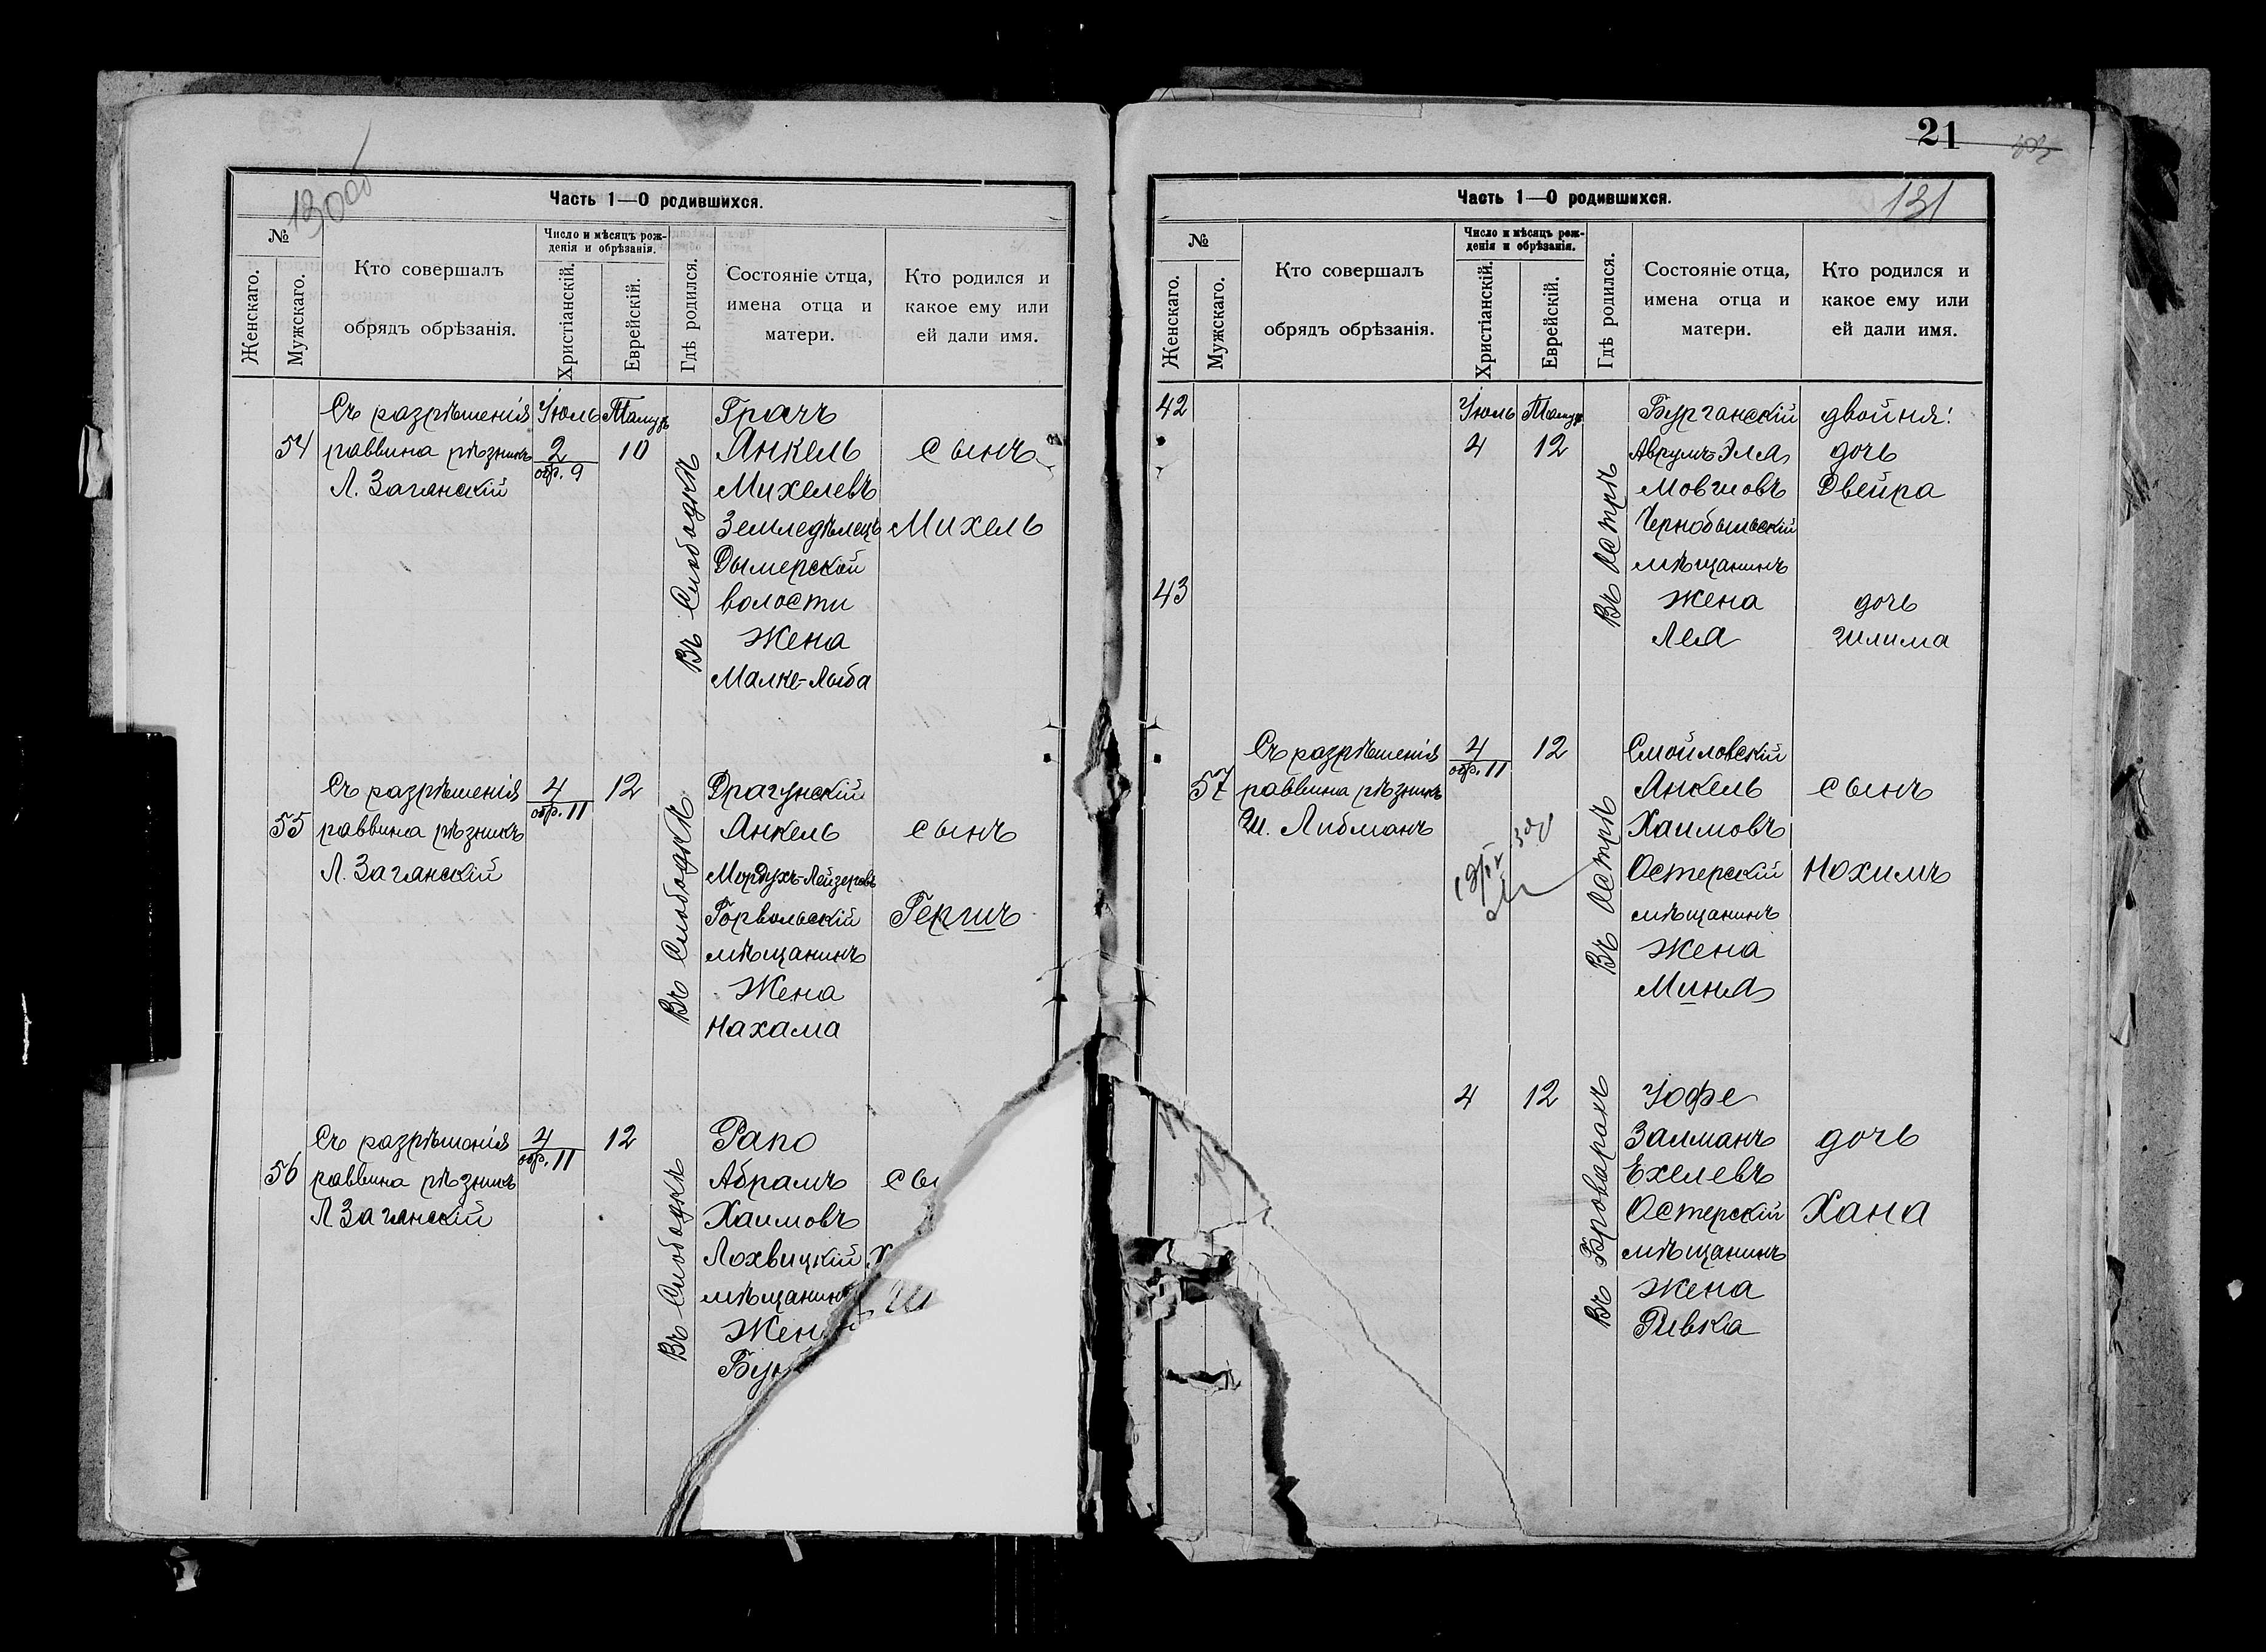 130об
Часть 1—О родившихся.
№
Женскаго.
Мужскаго.
Кто совершалъ
обрядъ обрѣзанія.
Число и мѣсяцъ рож-
денія и обрѣзанія.
Христіанскій.
Еврейскій.
Гдѣ родился.
Состояніе отца,
имена отца и
матери.
Кто родился и
какое ему или
ей дали имя.
Съ разрѣшенія Іюль Тамузъ Грачъ
54 раввина рѣзникъ 2 10 Янкель сынъ
Л. Заганскій обр. 9 Михелевъ
Въ Слободкѣ
Земледѣлецъ Михель
Дымерской
волости
Жена
Малке-Лыба
Съ разрѣшенія 4 12 Драгунскій
обр. 11
55 раввина рѣзникъ Янкель сынъ
Л. Заганскій Мордухъ-Лейзеровъ
Въ Слободкѣ
Горвольскій Гершъ
мѣщанинъ
Жена
Нахама
Съ разрѣшенія 4 12 Рапо
обр. 11
56 раввина рѣзникъ Абрамъ сы
Л Заганскій Хаимовъ
Въ Слободкѣ
Лохвицкій Х
мѣщанинъ
Жена
21
131
Часть 1—О родившихся.
№
Женскаго.
Мужскаго.
Кто совершалъ
обрядъ обрѣзанія.
Число и мѣсяцъ рож-
денія и обрѣзанія.
Христіанскій.
Еврейскій.
Гдѣ родился.
Состояніе отца,
имена отца и
матери.
Кто родился и
какое ему или
ей дали имя.
42 Іюль Тамузъ Бурганскій двойня:
4 12 Аврумъ-Эля дочь
Мовшовъ Двейра
Въ Острѣ
Чернобыльскій
мѣщанинъ
43 жена дочь
Лея Шлима
Съ разрѣшенія 4 12 Смойловскій
обр. 11
57 раввина рѣзникъ Янкель сынъ
Ш. Либманъ Хаимовъ
Въ Острѣ
Остерскій Нохимъ
мѣщанинъ
Жена
Миня
4 12 Іофе
Залманъ дочь
Ехелевъ
Въ Броварахъ
Остерскій Хана
мѣщанинъ
Жена
Ривка